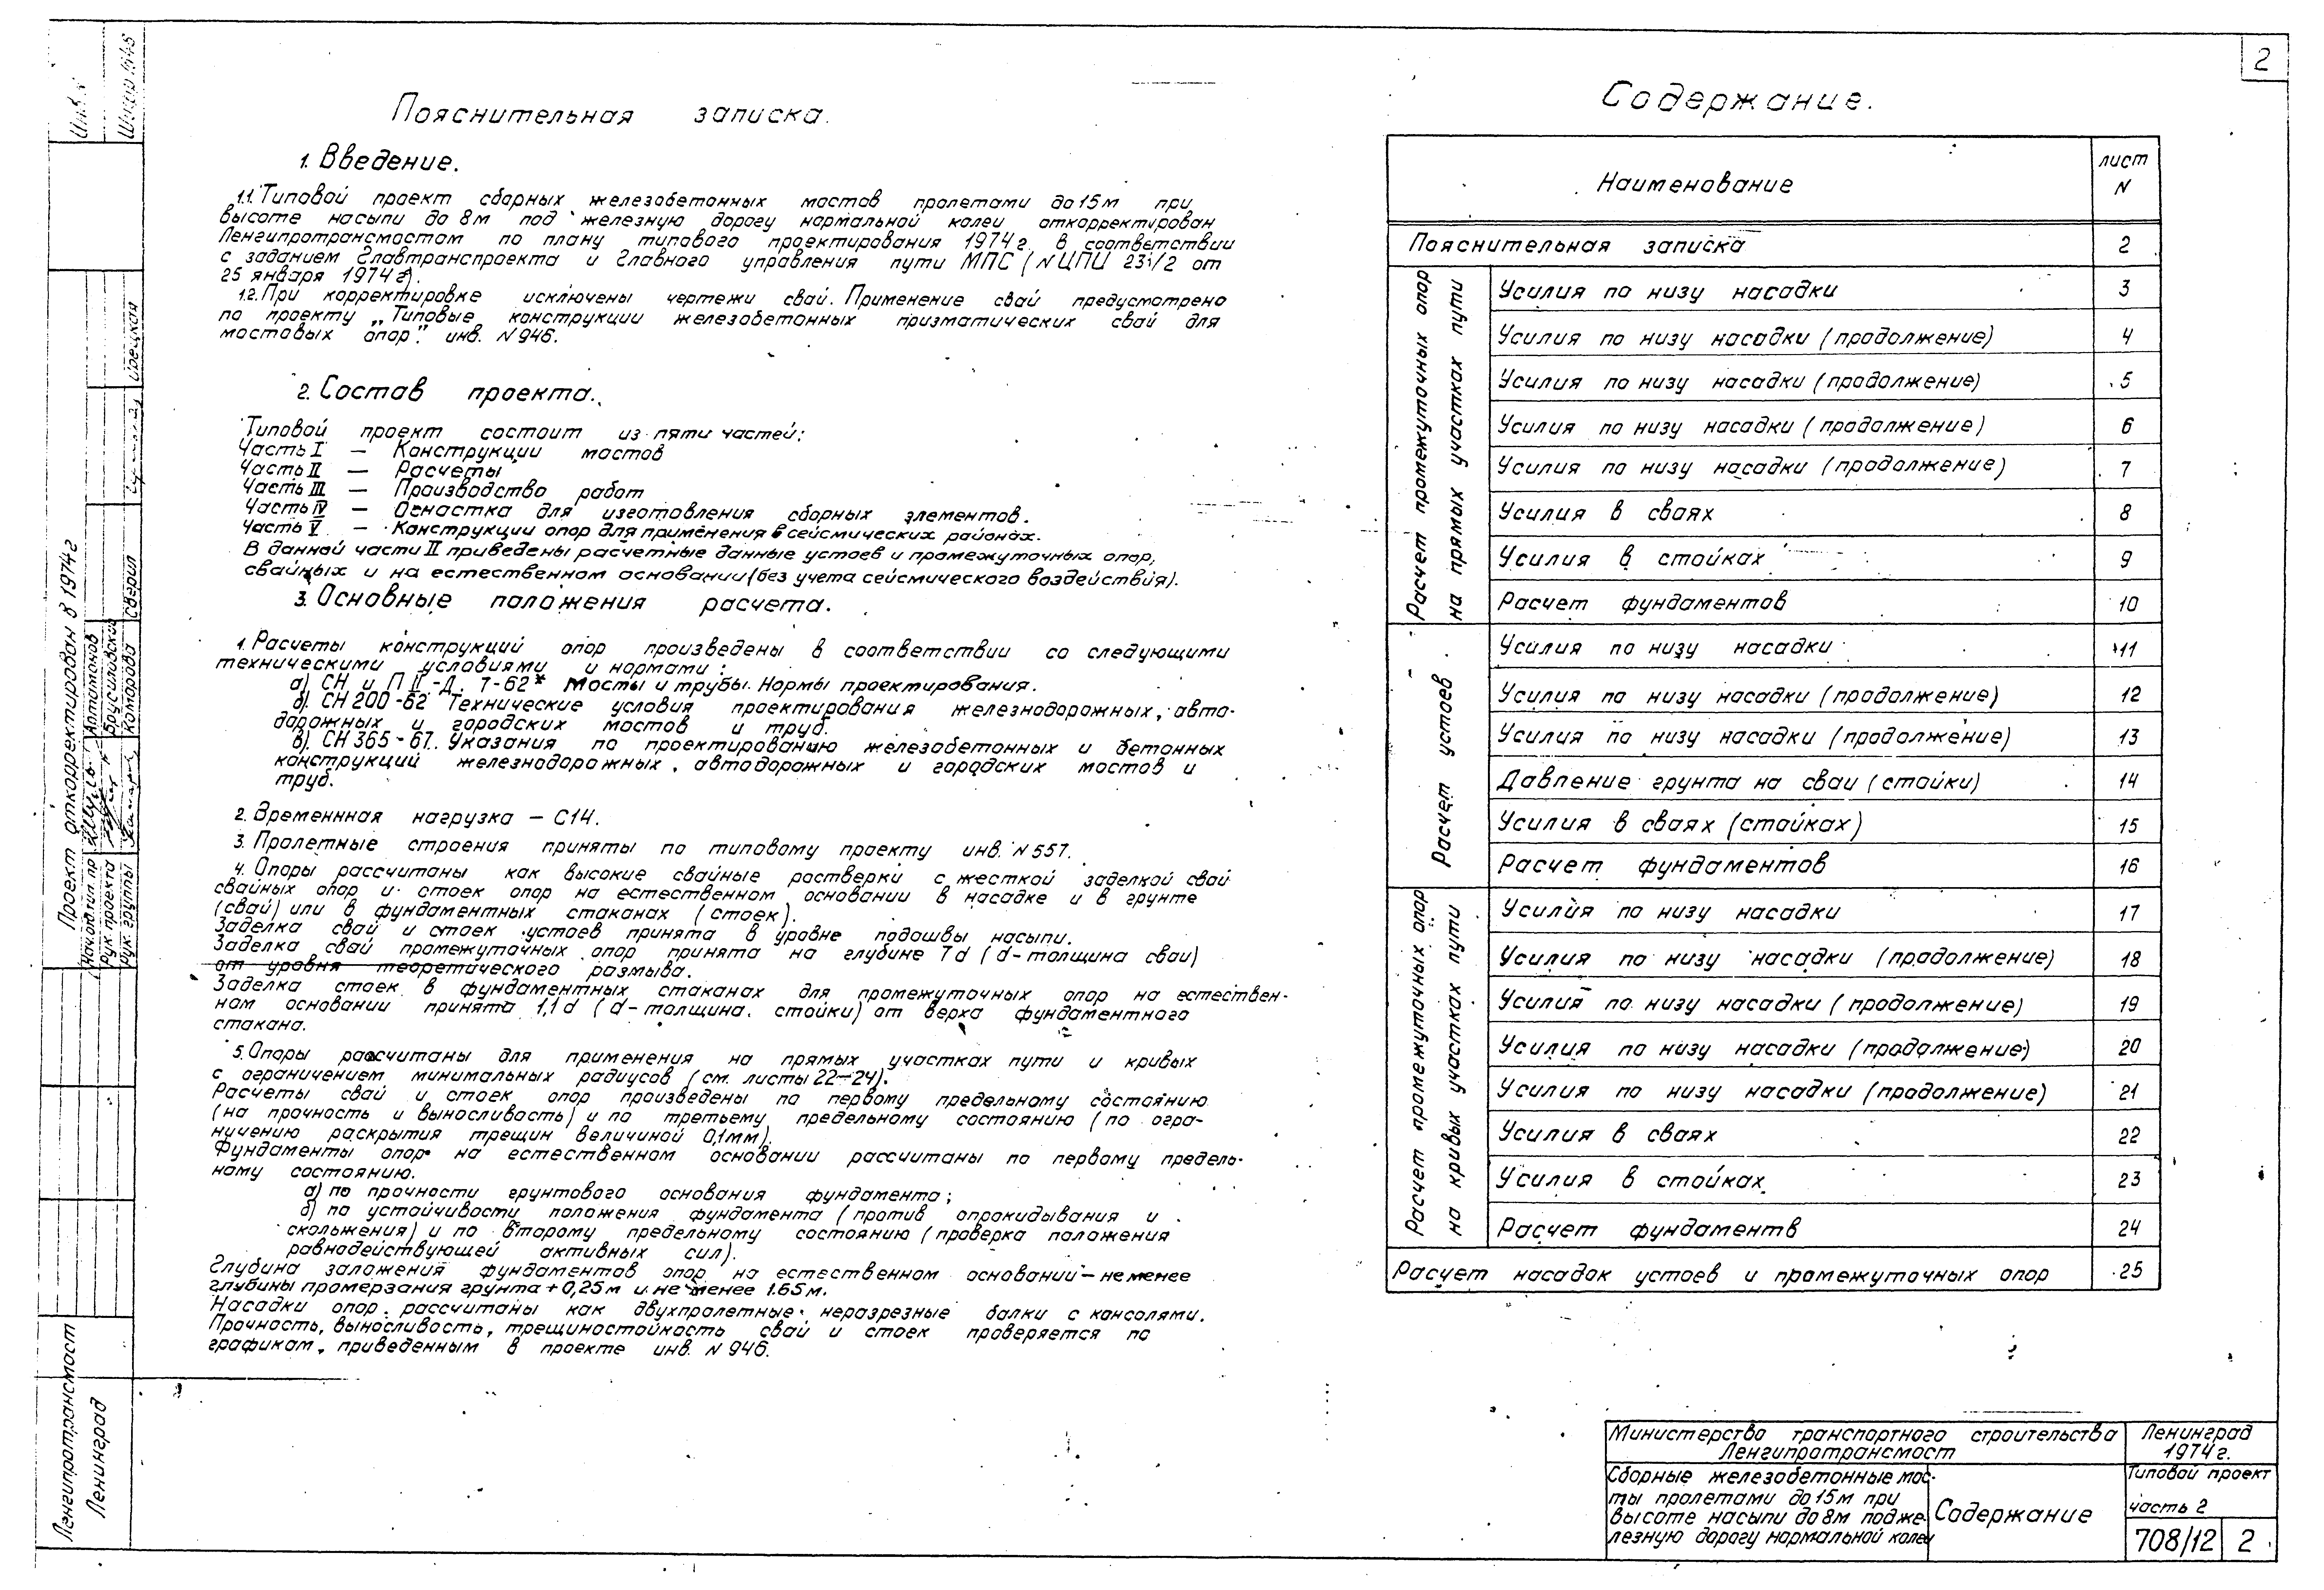 2
Пояснительная записка.
1. Введение.
1.1. Типовой проект сборных железобетонных мостов пролетами до 15м при
высоте насыпи до 8м под железную дорогу нормальной колеи откорректирован
Ленгипротрансмостом по плану типового проектирования 1974г. в соответствии
с заданием Главтранспроекта и Главного управления пути МПС (N ЦПИ 23/2 от
25 января 1974г).
1.2. При корректировке исключены чертежи свай. Применение свай предусмотрено
по проекту „Типовые конструкции железобетонных призматических свай для
мостовых опор". инв. N 946.
2. Состав проекта.
Типовой проект состоит из пяти частей:
Часть I — Конструкции мостов
Часть II — Расчеты
Часть III — Производство работ
Часть IV — Оснастка для изготовления сборных элементов.
Часть V — Конструкции опор для применения в сейсмических районах.
В данной части II приведены расчетные данные устоев и промежуточных опор,
свайных и на естественном основании (без учета сейсмического воздействия).
3. Основные положения расчета.
1. Расчеты конструкций опор произведены в соответствии со следующими
техническими условиями и нормами:
а) СН и П II-Д. 7-62* Мосты и трубы. Нормы проектирования.
б). СН 200-62 Технические условия проектирования железнодорожных, авто-
дорожных и городских мостов и труб.
в). СН 365-67. Указания по проектированию железобетонных и бетонных
конструкций железнодорожных, автодорожных и городских мостов и
труб.
2. Временнная нагрузка — С14.
3. Пролетные строения приняты по типовому проекту инв. N 557.
4. Опоры рассчитаны как высокие свайные ростверки с жесткой заделкой свай
свайных опор и стоек опор на естественном основании в насадке и в грунте
(свай) или в фундаментных стаканах (стоек).
Заделка свай и стоек устоев принята в уровне подошвы насыпи.
Заделка свай промежуточных опор принята на глубине 7d (d-толщина сваи)
от уровня теоретического размыва.
Заделка стоек в фундаментных стаканах для промежуточных опор на естествен-
ном основании принята 1,1d (d-толщина стойки) от верха фундаментного
стакана.
5. Опоры рассчитаны для применения на прямых участках пути и кривых
с ограничением минимальных радиусов (см. листы 22—24).
Расчеты свай и стоек опор произведены по первому предельному состоянию
(на прочность и выносливость) и по третьему предельному состоянию (по огра-
ничению раскрытия трещин величиной 0,1мм).
Фундаменты опор на естественном основании рассчитаны по первому предель-
ному состоянию.
а) по прочности грунтового основания фундамента;
б) по устойчивости положения фундамента (против опрокидывания и
скольжения) и по второму предельному состоянию (проверка положения
равнодействующей активных сил).
Глубина заложения фундаментов опор на естественном основании — не менее
глубины промерзания грунта + 0,25м и не менее 1.65м.
Насадки опор рассчитаны как двухпролетные неразрезные балки с консолями.
Прочность, выносливость, трещиностойкость свай и стоек проверяется по
графикам, приведенным в проекте инв. N 946.
Содержание.
Наименование
лист
N
Пояснительная записка 2
Расчет промежуточных опор
на прямых участках пути
Усилия по низу насадки 3
Усилия по низу насадки (продолжение) 4
Усилия по низу насадки (продолжение) 5
Усилия по низу насадки (продолжение) 6
Усилия по низу насадки (продолжение) 7
Усилия в сваях 8
Усилия в стойках 9
Расчет фундаментов 10
Расчет устоев
Усилия по низу насадки 11
Усилия по низу насадки (продолжение) 12
Усилия по низу насадки (продолжение) 13
Давление грунта на сваи (стойки) 14
Усилия в сваях (стойках) 15
Расчет фундаментов 16
Расчет промежуточных опор
на кривых участках пути
Усилия по низу насадки 17
Усилия по низу насадки (продолжение) 18
Усилия по низу насадки (продолжение) 19
Усилия по низу насадки (продолжение) 20
Усилия по низу насадки (продолжение) 21
Усилия в сваях 22
Усилия в стойках 23
Расчет фундаментв 24
Расчет насадок устоев и промежуточных опор 25
Министерство транспортного строительства
Ленгипротрансмост
Ленинград
1974г.
Сборные железобетонные мос-
ты пролетами до 15м при
высоте насыпи до 8м под же-
лезную дорогу нормальной колеи
Содержание
Типовой проект
часть 2
708/12
2
Проект откорректирован в 1974г
Нач. отд. тип. пр.
Артамонов
Рук. проекта
Брусиловский
Рук. группы
Комарова
Сверил
Ленгипротрансмост
Ленинград